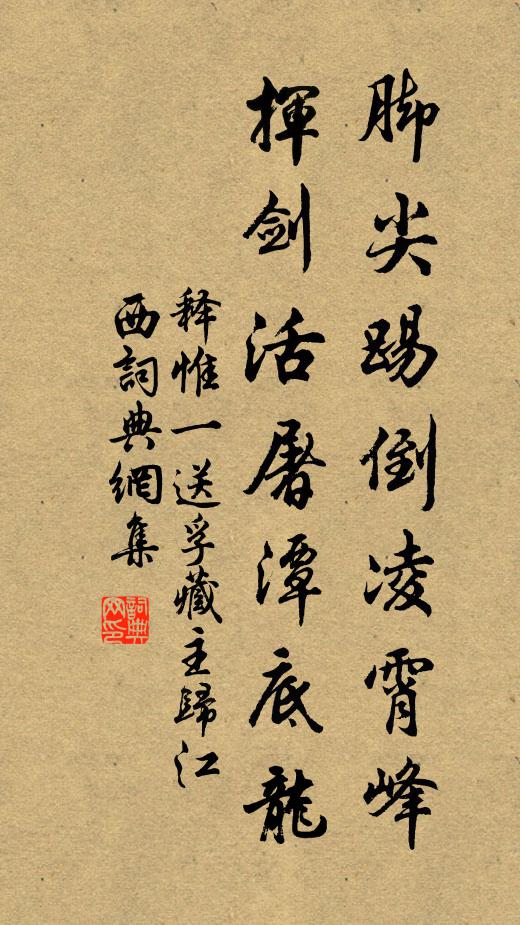 脚尖踢倒凌霄峰
揮剑活屠潭底龍
释惟一送孚藏主歸江
西詞典網集
詞典
网印